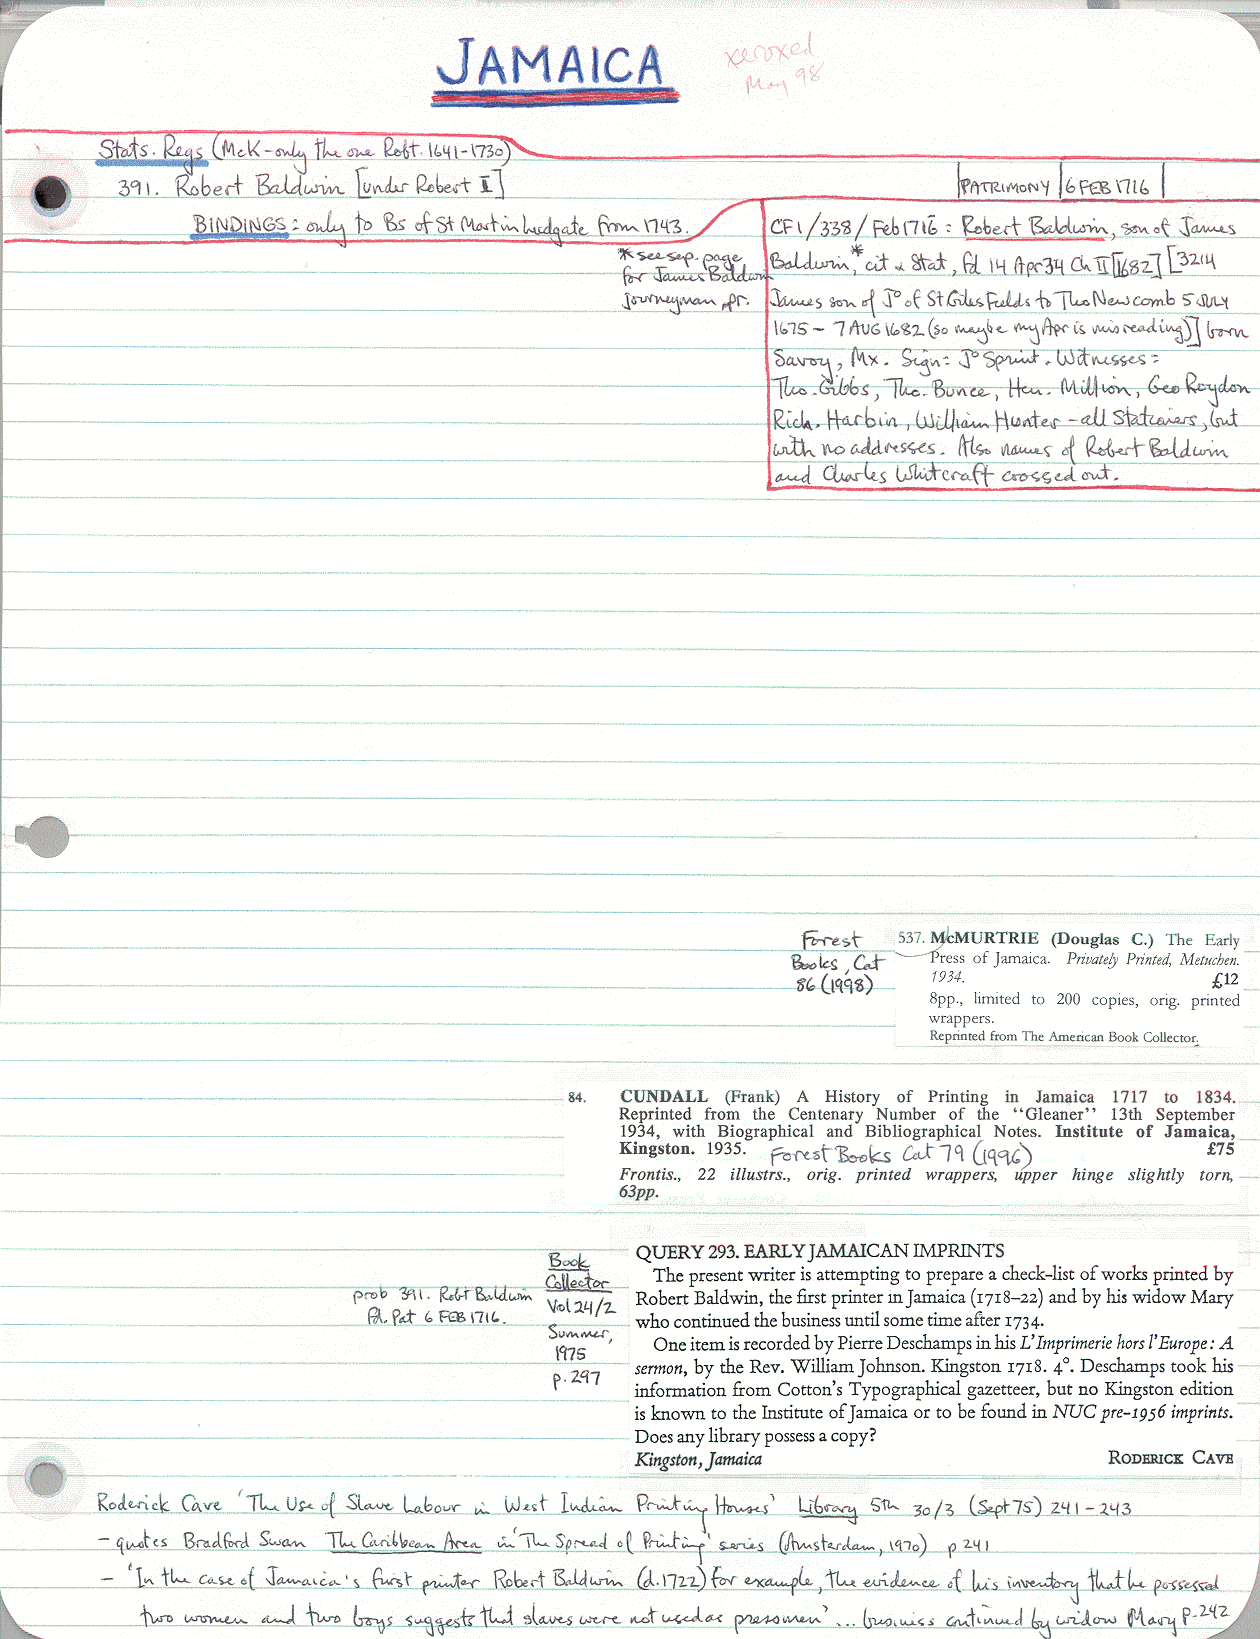 JAMAICA
xeroxed
May 98
Stats. Regs (McK-only the one Robt. 1641-1730)
391. Robert Baldwin [under Robert I]
PATRIMONY 6 FEB 1716
BINDINGS: only to Bs of St Martin Ludgate from 1743.
* see sep. page
for James Baldwin
journeyman pr.
CF1/338/Feb 1716 = Robert Baldwin, son of James
Baldwin,* cit & Stat, fd 14 Apr 34 Ch II [1682] [3214
James son of Jo of St Giles Fields to Tho Newcomb 5 JULY
1675 - 7 AUG 1682 (so maybe my Apr is misreading)] born
Savoy, Mx. Sign: Jo Sprint. Witnesses =
Tho. Gibbs, Tho. Bunce, Hen. Million, Geo Roydon
Rich. Harbin, William Hunter - all Stationers, but
with no addresses. Also names of Robert Baldwin
and Charles Whitcraft crossed out.
Forest
Books, Cat
86 (1998)
537. McMURTRIE (Douglas C.) The Early
Press of Jamaica. Privately Printed, Metuchen.
1934. £12
8pp., limited to 200 copies, orig. printed
wrappers.
Reprinted from The American Book Collector.
84. CUNDALL (Frank) A History of Printing in Jamaica 1717 to 1834.
Reprinted from the Centenary Number of the "Gleaner" 13th September
1934, with Biographical and Bibliographical Notes. Institute of Jamaica,
Kingston. 1935. Forest Books Cat 79 (1996) £75
Frontis., 22 illustrs., orig. printed wrappers, upper hinge slightly torn,
63pp.
prob 391. Robt Baldwin
fd. Pat 6 FEB 1716.
Book
Collector
Vol 24/2
Summer,
1975
p.297
QUERY 293. EARLY JAMAICAN IMPRINTS
The present writer is attempting to prepare a check-list of works printed by
Robert Baldwin, the first printer in Jamaica (1718–22) and by his widow Mary
who continued the business until some time after 1734.
One item is recorded by Pierre Deschamps in his L'Imprimerie hors l'Europe: A
sermon, by the Rev. William Johnson. Kingston 1718. 4°. Deschamps took his
information from Cotton's Typographical gazetteer, but no Kingston edition
is known to the Institute of Jamaica or to be found in NUC pre-1956 imprints.
Does any library possess a copy?
Kingston, Jamaica RODERICK CAVE
Roderick Cave 'The Use of Slave Labour in West Indian Printing Houses' Library 5th 30/3 (Sept 75) 241-243
- quotes Bradford Swan The Caribbean Area in 'The Spread of Printing' series (Amsterdam, 1970) p 241
- 'In the case of Jamaica's first printer Robert Baldwin (d.1722) for example, the evidence of his inventory that he possessed
two women and two boys suggests that slaves were not used as pressmen' ... business continued by widow Mary p.242